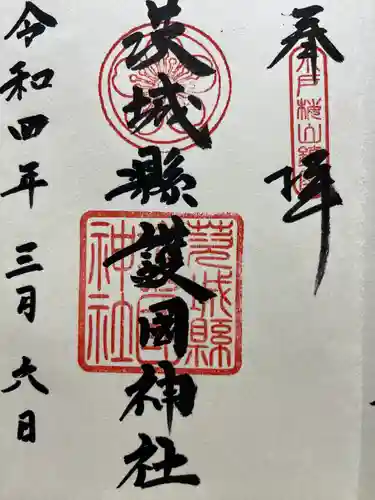 奉拝
茨城縣護國神社
茨城縣
護國
神社
令和四年三月六日